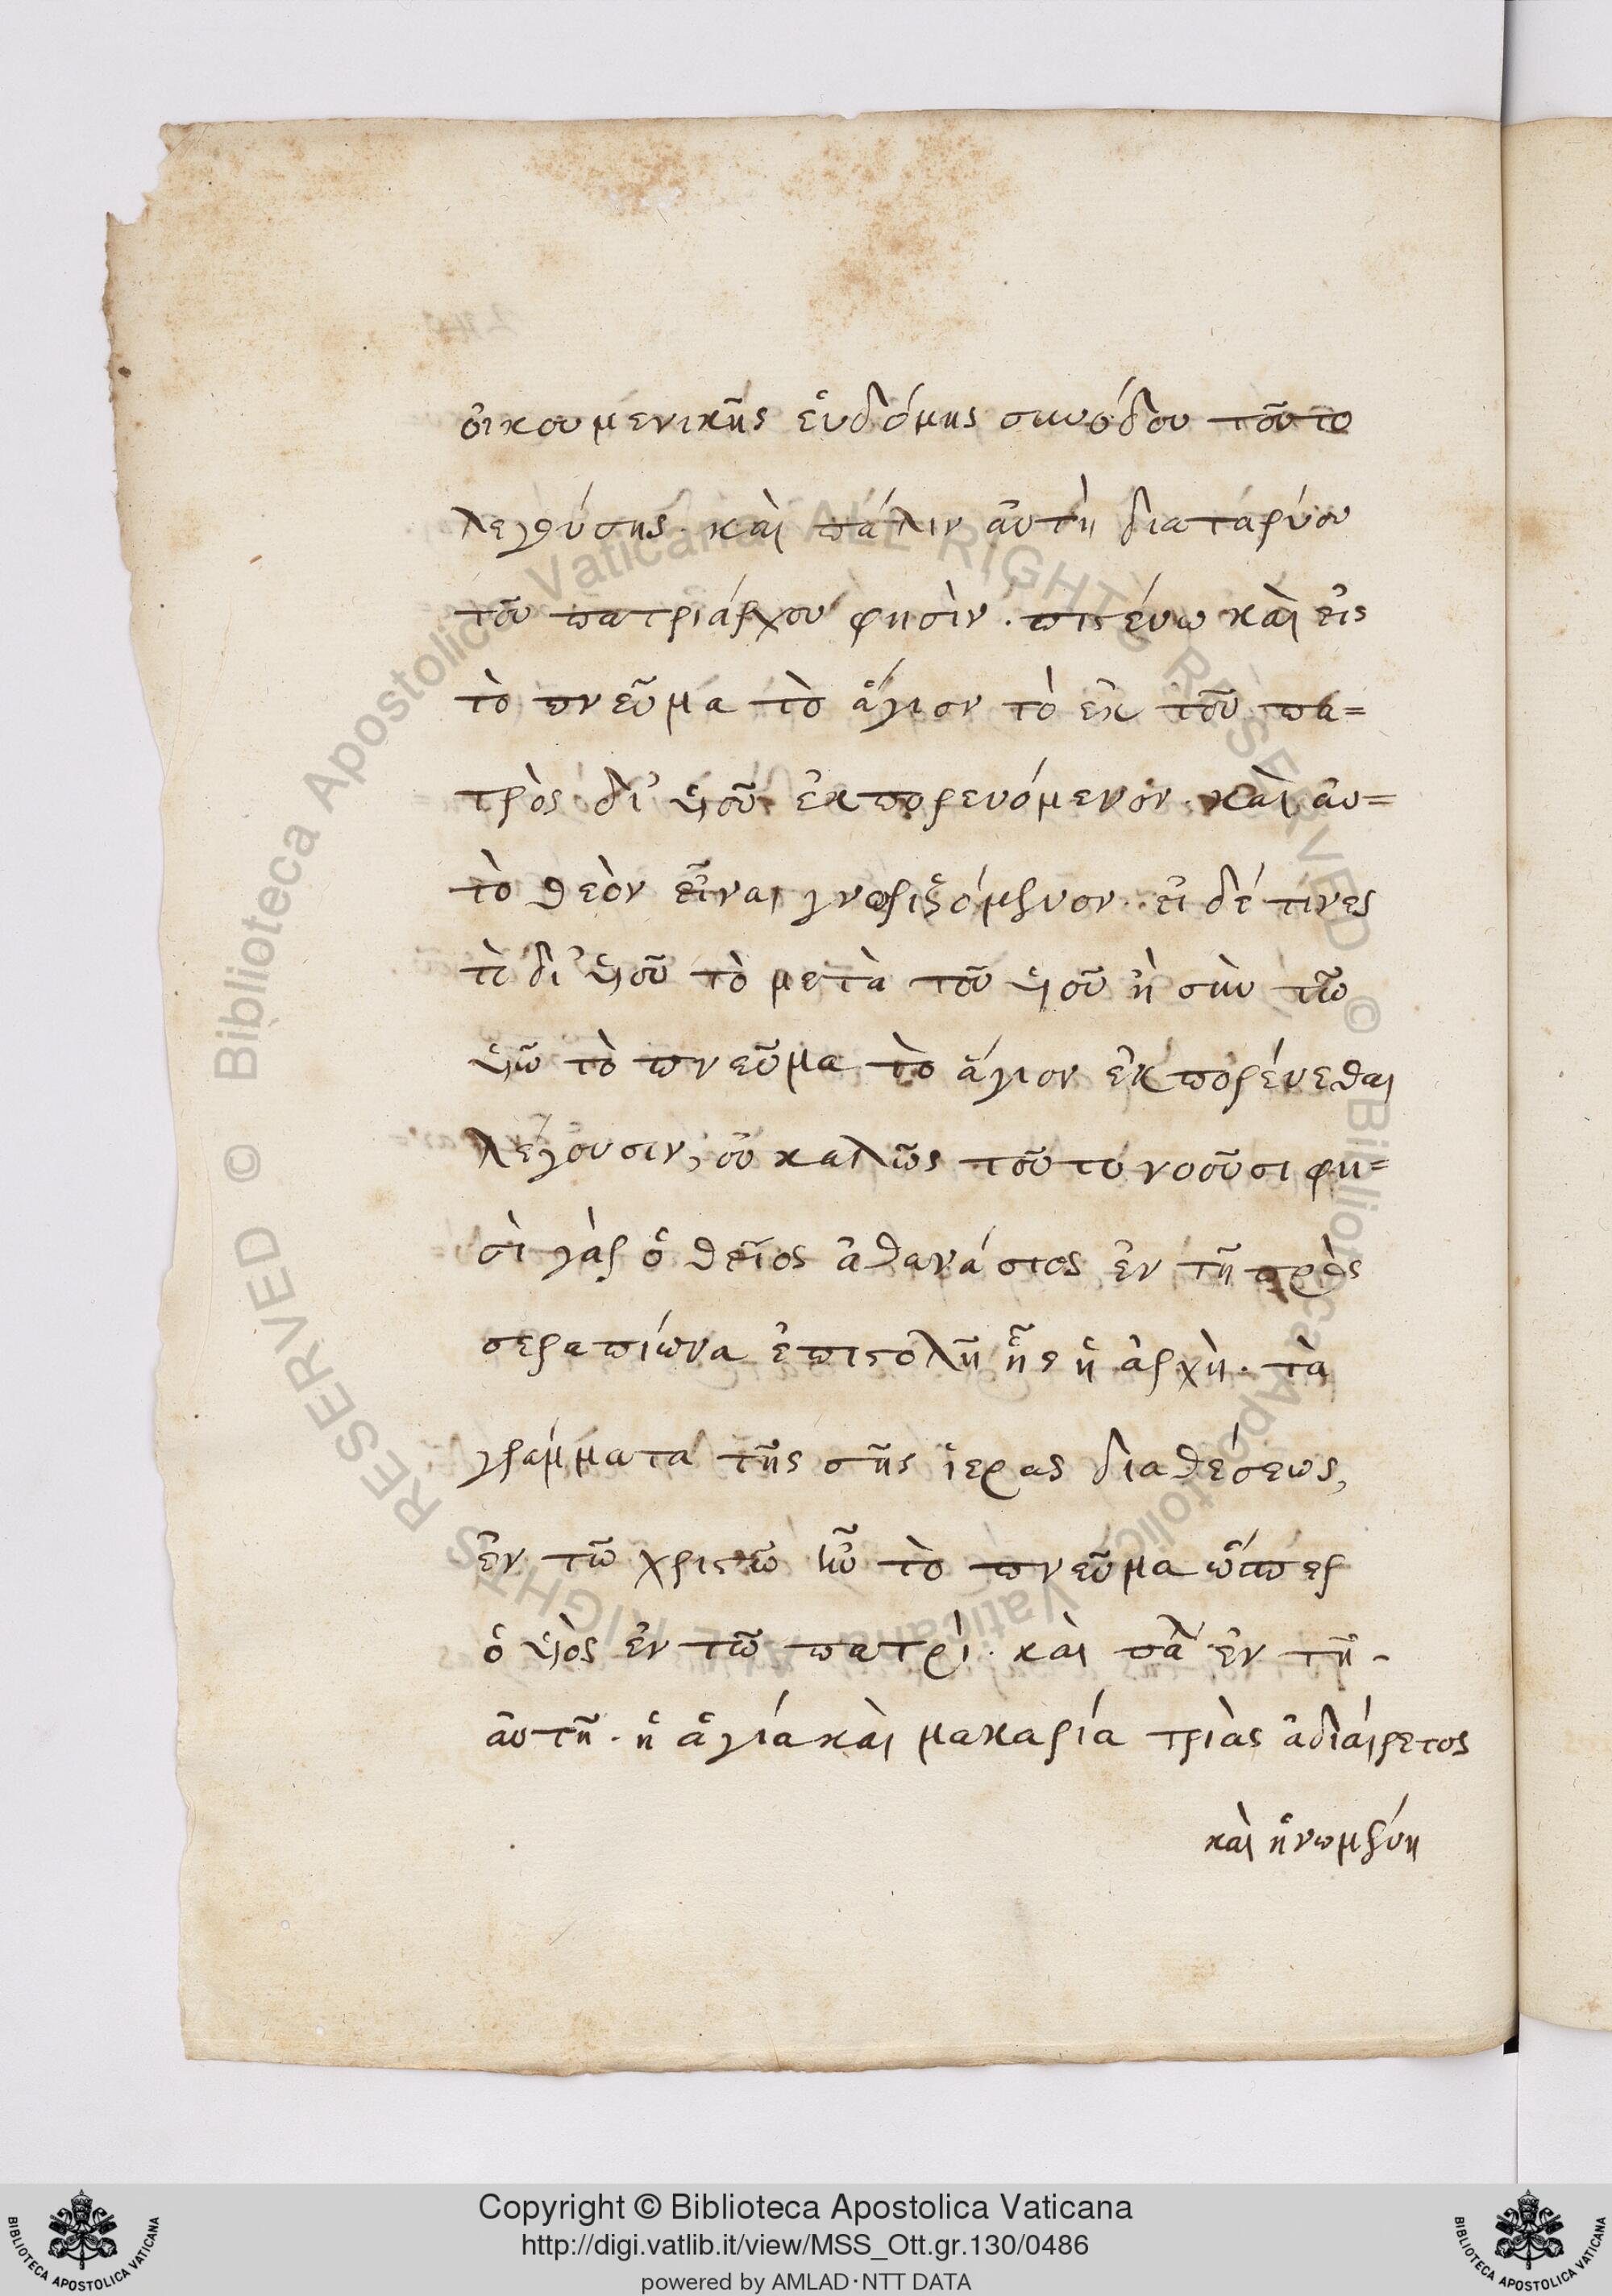 οἰκουμενικῆς ἑυδόμης συνόδου τοῦτο
λεχθείσης. καὶ πάλιν αὐτὴ διαταρσίου
τοῦ πατριάρχου φησὶν. πιστέυω καὶ εἰς
τὸ πνεῦμα τὸ ἅγιον τὸ ἐκ τοῦ πα=
τρὸς δι' ὑιοῦ ἐκπορευόμενον. καὶ αὐ=
τὸ θεὸν εἶναι γνωριζόμενον. εἰ δέ τινες
τὸ δι' ὑιοῦ τὸ μετὰ τοῦ ὑιοῦ ἢ σὺν τῶ
ὑιῶ τὸ πνεῦμα τὸ ἅγιον ἐκπορέυεσθαι
λέγουσιν, οὐ καλῶς τοῦτο νοοῦσι φη=
σὶ γὰρ ὁ θεῖος ἀθανάσιος ἐν τῆ πρὸς
σεραπίωνα ἐπιστολῆ ἧς ἡ ἀρχὴ. τὰ
γράμματα τῆς σῆς ἱερας διαθέσεως,
ἐν τῶ χριστῶ ἦν τὸ πνεῦμα ὥσπερ
ὁ ὑιὸς ἐν τῶ πατρί. καὶ πάλ ἐν τῆ
αὐτῆ. ἡ ἁγία καὶ μακαρία τριὰς ἀδιάιρετος
καὶ ἡνωμένη
Copyright © Biblioteca Apostolica Vaticana
http://digi.vatlib.it/view/MSS_Ott.gr.130/0486
powered by AMLAD·NTT DATA
BIBLIOTECA APOSTOLICA VATICANA
BIBLIOTECA APOSTOLICA VATICANA
© Biblioteca Apostolica Vaticana ALL RIGHTS RESERVED © Biblioteca Apostolica Vaticana ALL RIGHTS RESERVED